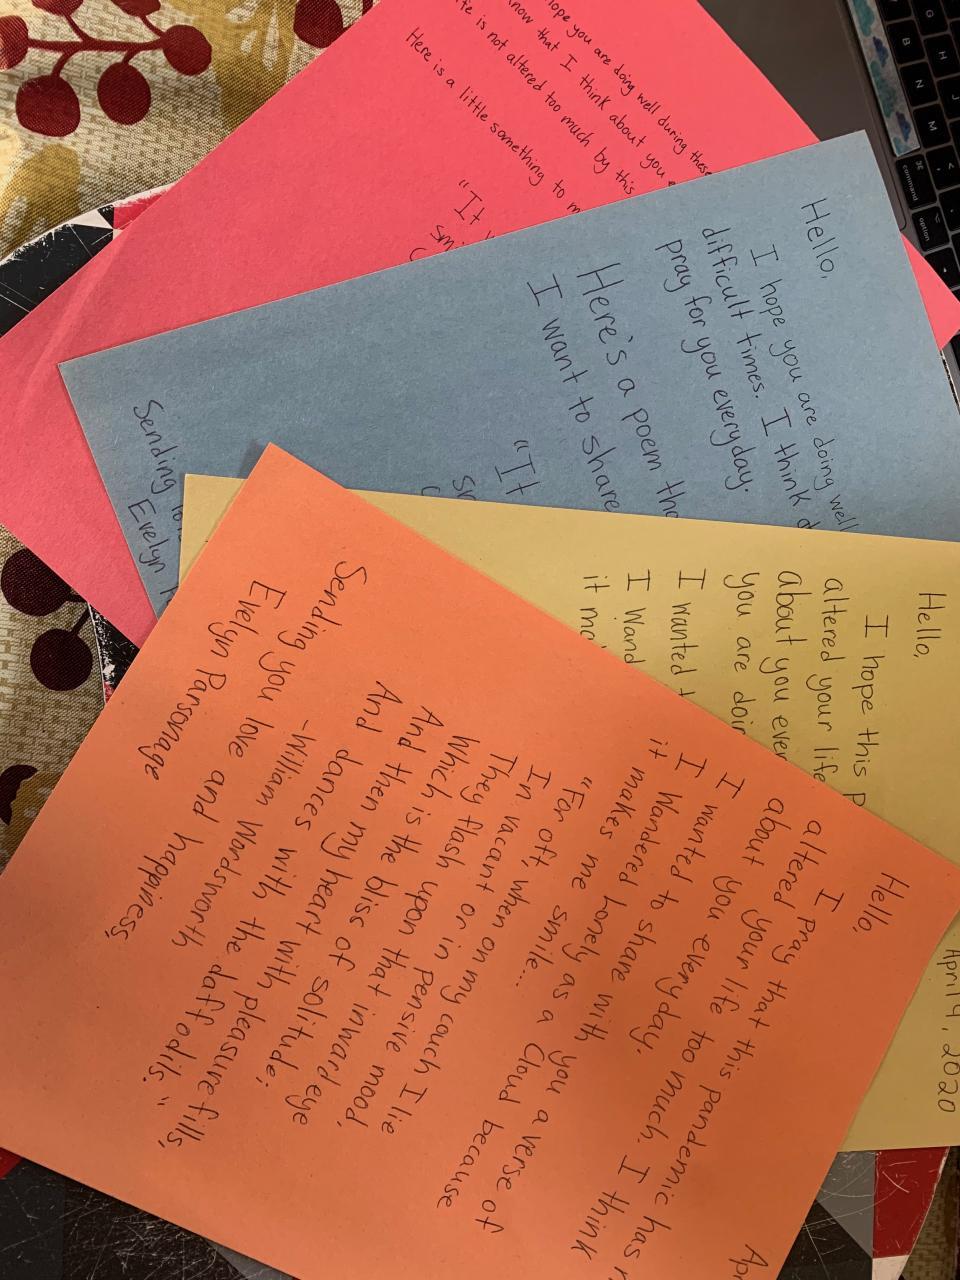 hope you are doing well during these
now that I think about you
life is not altered too much by this
Here is a little something to
"It
Hello,
I hope you are doing well
difficult times. I think
pray for you everyday.
Here's a poem
I want to share
"It
Sending
Evelyn
April 4, 2020
Hello,
I hope this
altered your life
about you
you are
I wanted
I
it
Hello,
I pray that this pandemic has
altered your life too much. I think
about you every day.
I wanted to share with you a verse of
I Wandered Lonely as a Cloud because
it makes me smile...
"For oft, when on my couch I lie
In vacant or in pensive mood,
They flash upon that inward eye
Which is the bliss of solitude;
And then my heart with pleasure fills,
And dances with the daffodils."
- William Wordsworth
Sending you love and happiness,
Evelyn Parsonage
G
H
J
B
N
M
<
⌘
command
option